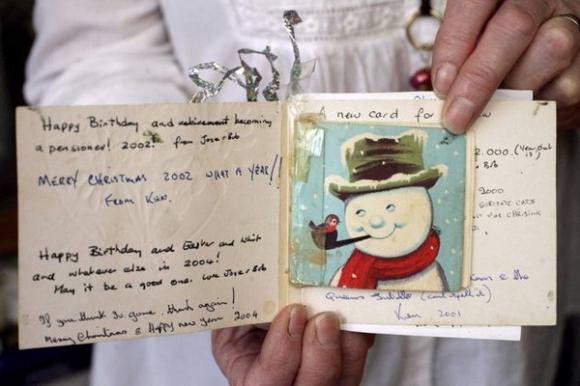 Happy Birthday and retirement becoming
a pensioner! 2002! from Joss & Bob
MERRY CHRISTMAS 2002 WHAT A YEAR!!
FROM KEN.
Happy Birthday and Easter and Whit
and whatever else in 2004!
May it be a good one. Love Joss & Bob
If you think I'm gone, think again!
Merry Christmas & Happy new year 2004
A new card for
2.000. (Year, but
is)
Bob
2000
Ken & the
Queens Jubilee (cant spell it)
Ken 2001